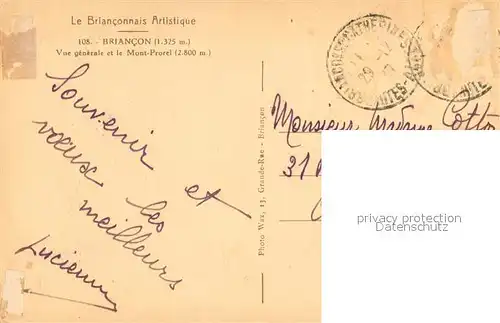 Le Briançonnais Artistique
108. - BRIANÇON (1.375 m.)
Vue générale et le Mont-Prorel (2.800 m.)
Souvenir et
vœux les
meilleurs
Lucienne
Photo Wax, 13, Grande-Rue - Briançon
Monsieur Madame Cotto
31
privacy protection
Datenschutz